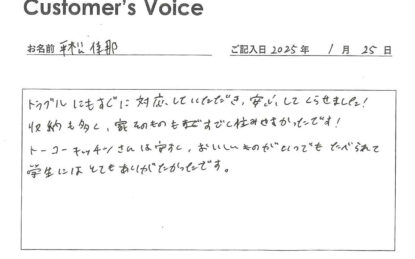 Customer's Voice
お名前 平松 佳那 ご記入日 2025年 1月 25日
トラブルにもすぐに対応していただき、安心してくらせました!
収納も多く、家そのものもすごく住みやすかったです!
トーコーキッチンさんは安く、おいしいものがいつでもたべられて
学生にはとてもありがたかったです。